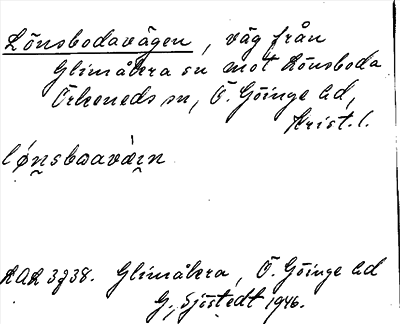 Lönsbodavägen, väg från
Glimåkra sn mot Lönsboda
Örkeneds sn, Ö. Göinge hd,
Krist. l.
lǿn̬sboavàɪn̬
LAL 3738. Glimåkra, Ö. Göinge hd
G. Sjöstedt 1946.